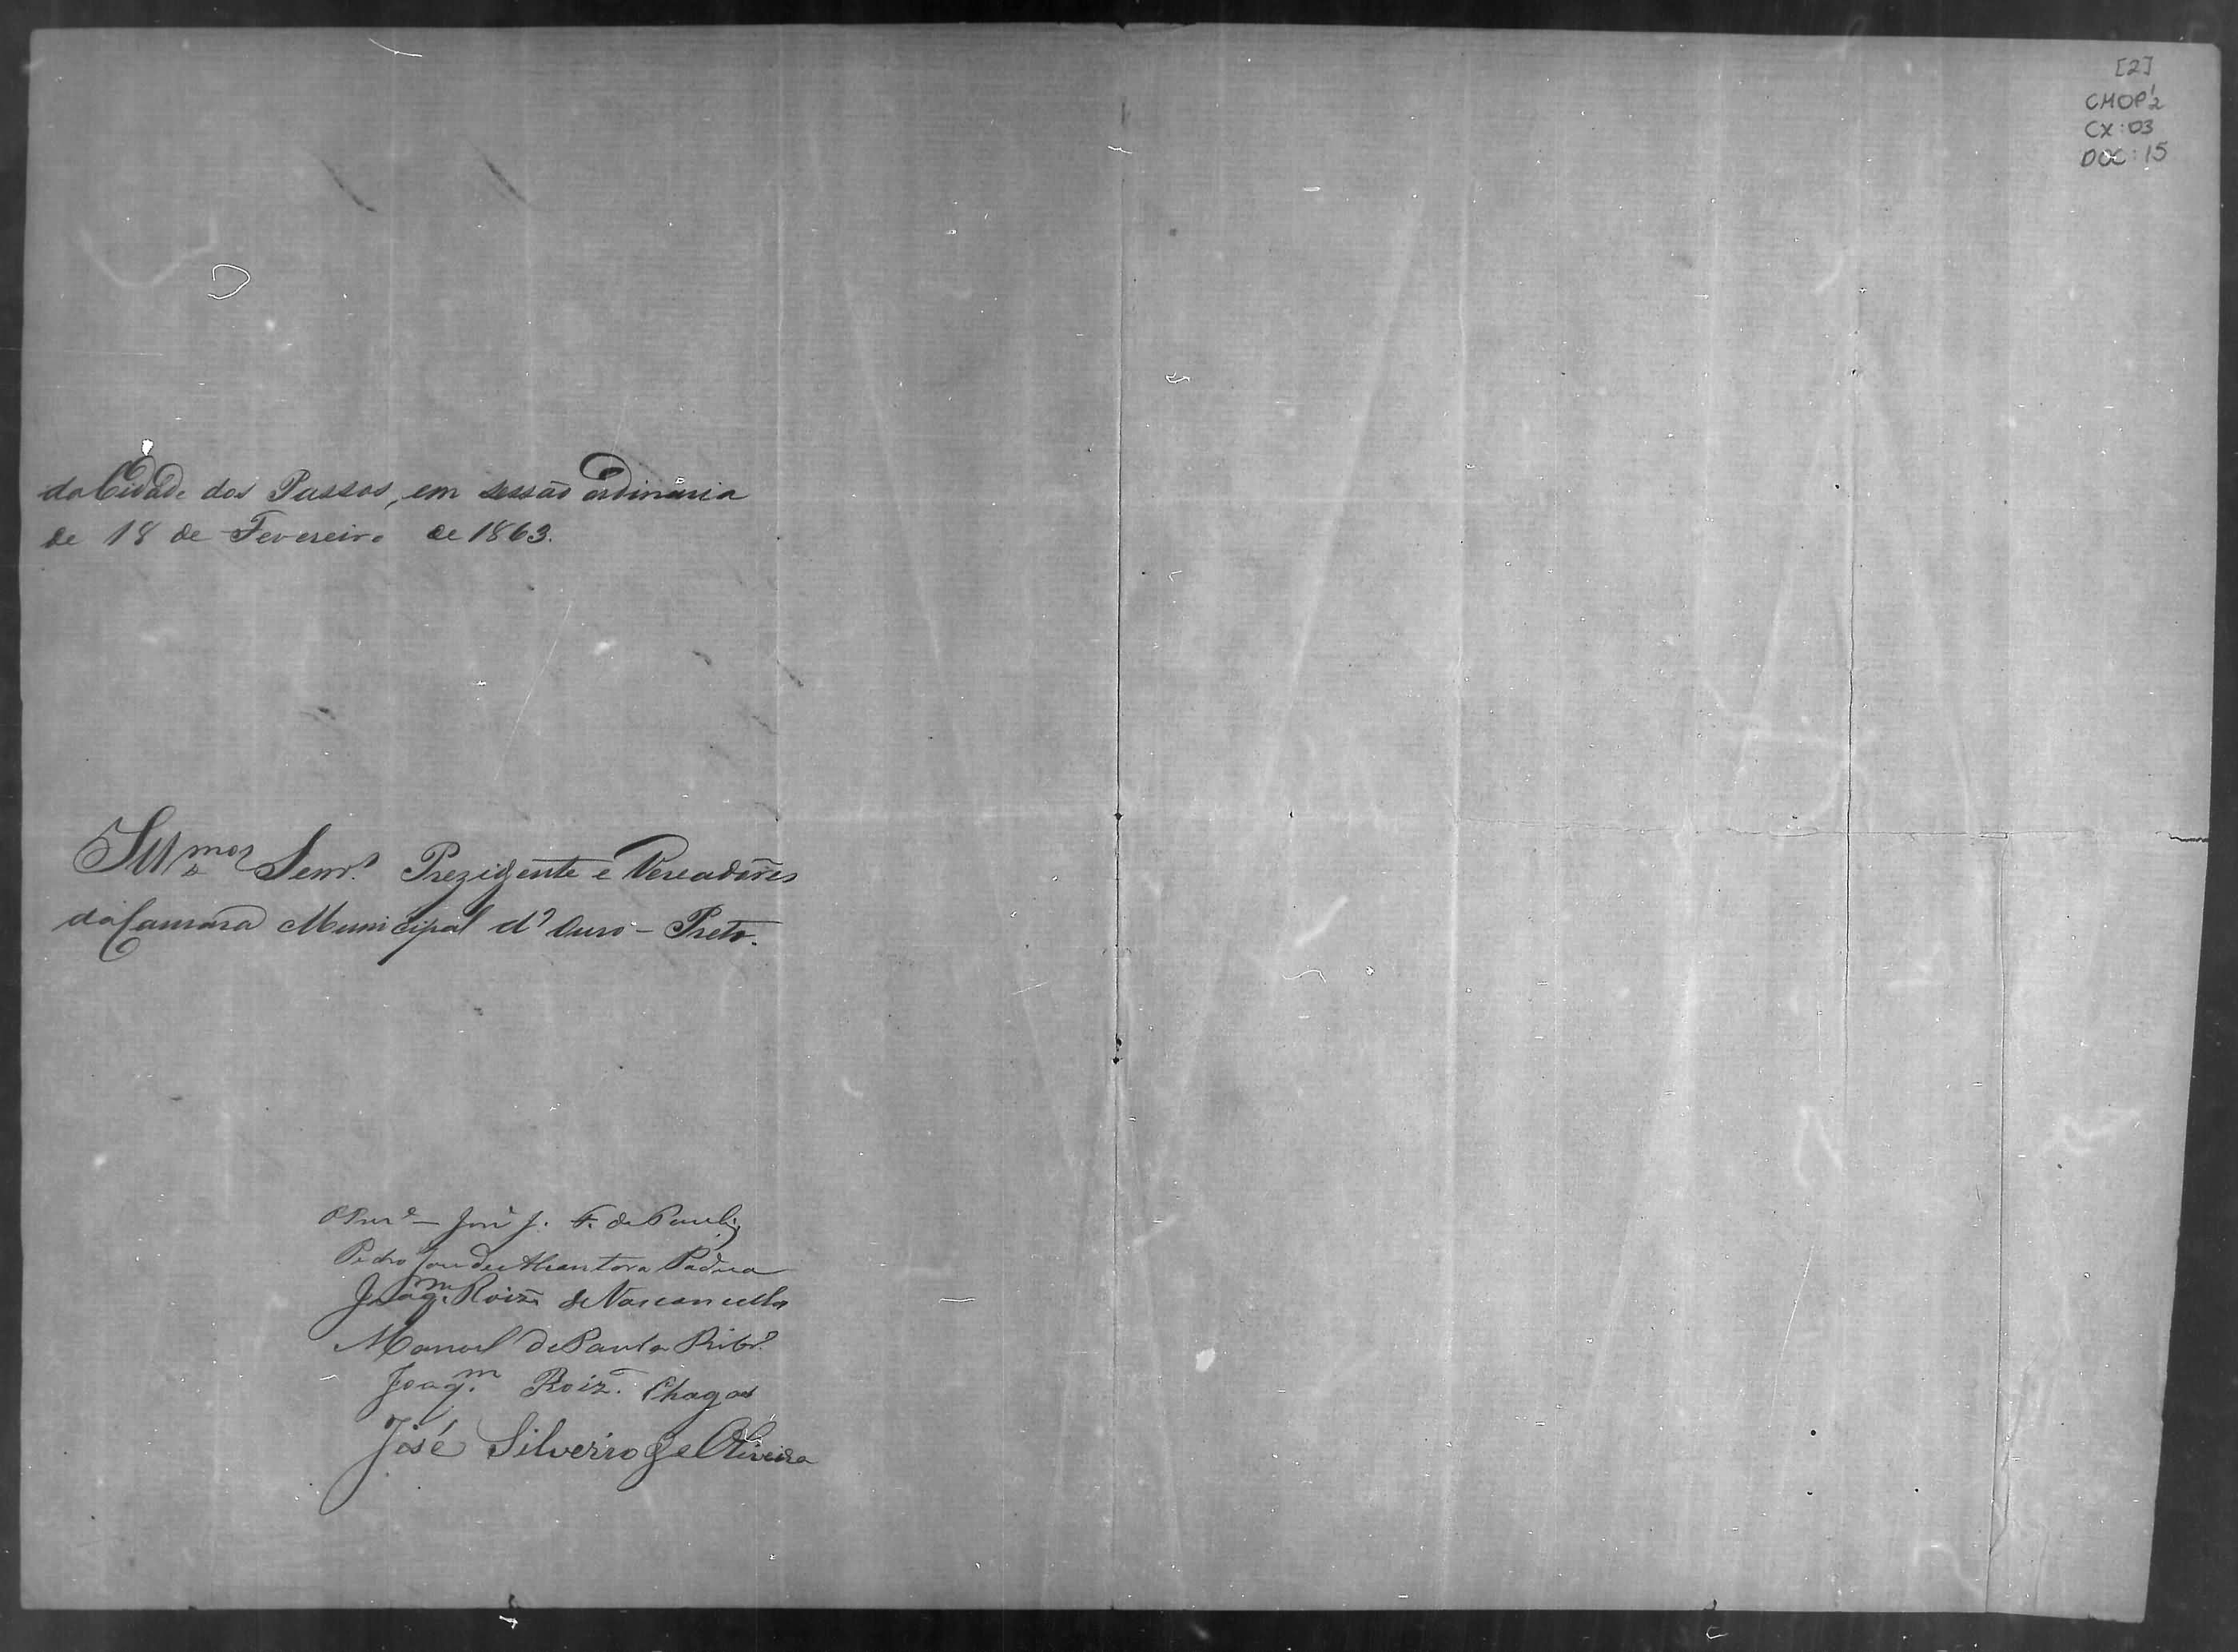 [2]
CMOP 1/2
CX: 03
DOC: 15
da Cidade dos Passos, em sessão ordinaria
de 18 de Fevereiro de 1863.
Ill.mos Senr.s Prezidente e Vereadores
da Camara Municipal d'Ouro-Preto.
José J. F. de
Pedro José de Alcantara Padua
Joaq.m Roiz de Vasconcellos
Manoel de Paula Ribr.o
Joaq.m Roiz. Chagas
José Silverio de Oliveira